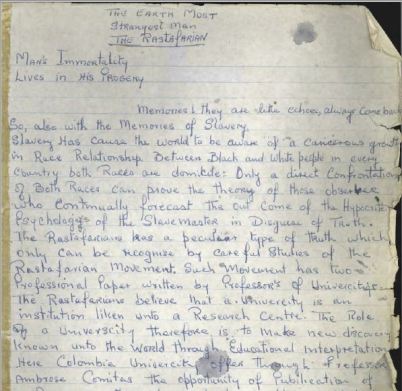 The Earth Most
Strangest Man
The Rastafarian
Man's Immortality
Lives in His Progeny
Memories! they are like echoes, always come back
So, also with the Memories of Slavery.
Slavery Has cause the world to be aware of a cancerous growth
in Race Relationship Between Black and White people in every
country both Races are domicile: Only a direct Confrontation
of Both Races can prove the theory of those observer
who continually forecast the out come of the Hypocrite
Psychology's of the Slavemaster in Disguse of Truth.
The Rastafarians has a peculiar type of truth which
only can be recognize by careful Studies of the
Rastafarian Movement. Such Movement has two
Professional Paper written by Professor's of Univercity's.
The Rastafarians believe that a univercity is an
institution liken unto a Research Centre. The Role
of a Universcity therefore is to make new discovery
known unto the World through Educational Interpretation
Here Colombia Univercity offer through Professor
Ambrose Comitas the opportunity of Publication